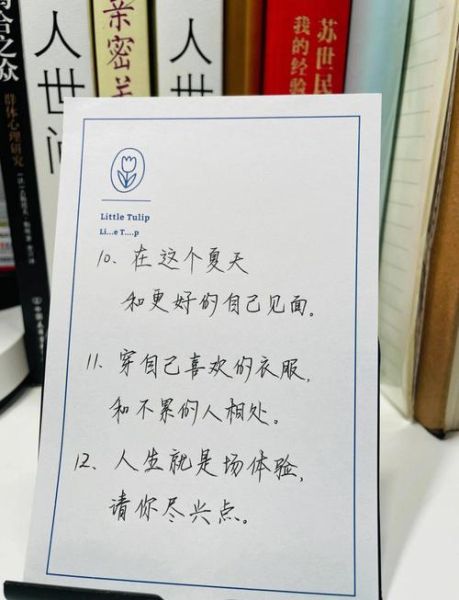 人世间
亲密关
人世
苏世民
我的经验
合之众
群体心理研究
Little Tulip
Li...e T....p
10、在这个夏天
和更好的自己见面。
11、穿自己喜欢的衣服,
和不累的人相处。
12、人生就是场体验,
请你尽兴点。